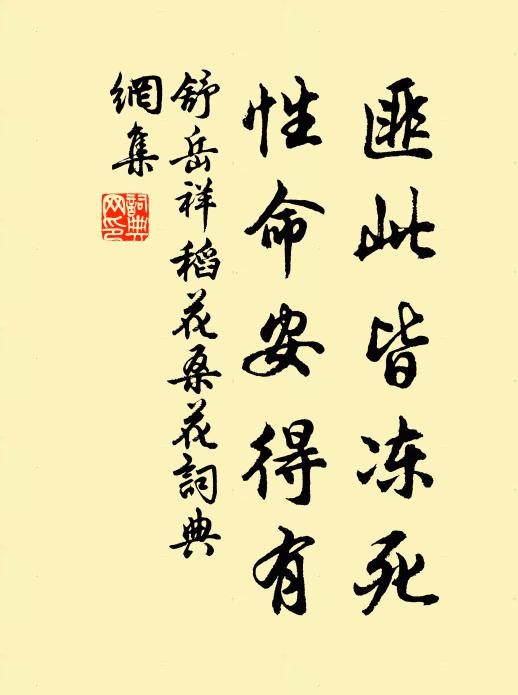 匪此皆冻死
性命安得有
舒岳祥稻花桑花詞典
網集
詞典网印